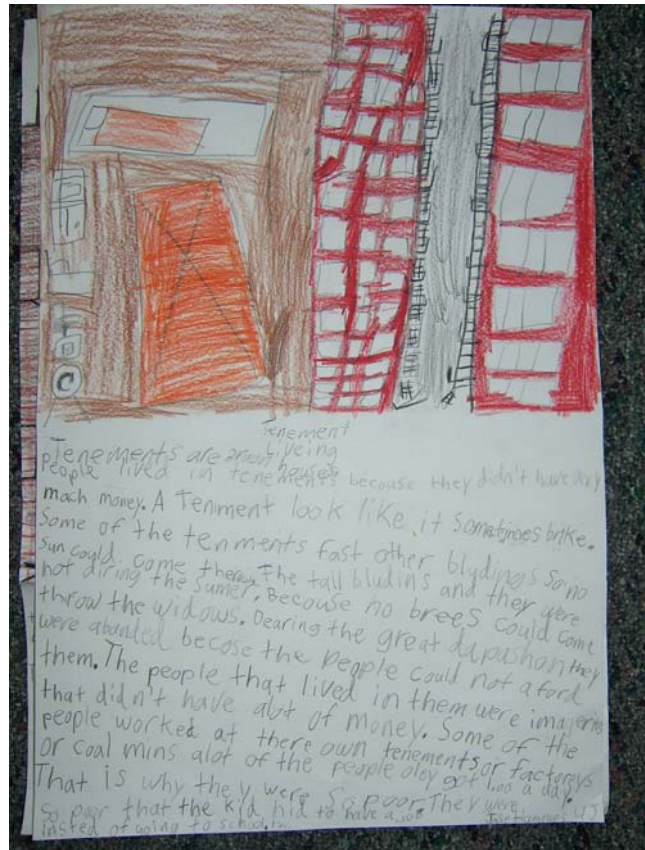 tenement
Tenements are liveing houses
people lived in tenements becouse they didn't have very
mach money. A Tenment look like it somatimes brike.
Some of the tenments fast other bludings so no
sun could come therew. The tall bludins and they were
hot diring the sumer. Becouse no brees could come
throw the widows. Dearing the great dapashon they
were abanded becose the people could not aford
them. The people that lived in them were
that didn't have alot of money. Some of the
people worked at there own tenements or factoreys
or coal mins alot of the people oley got 1.00 a day.
That is why they were so poor. They were
so poor that the kid hid to have a job
insted of going to school.